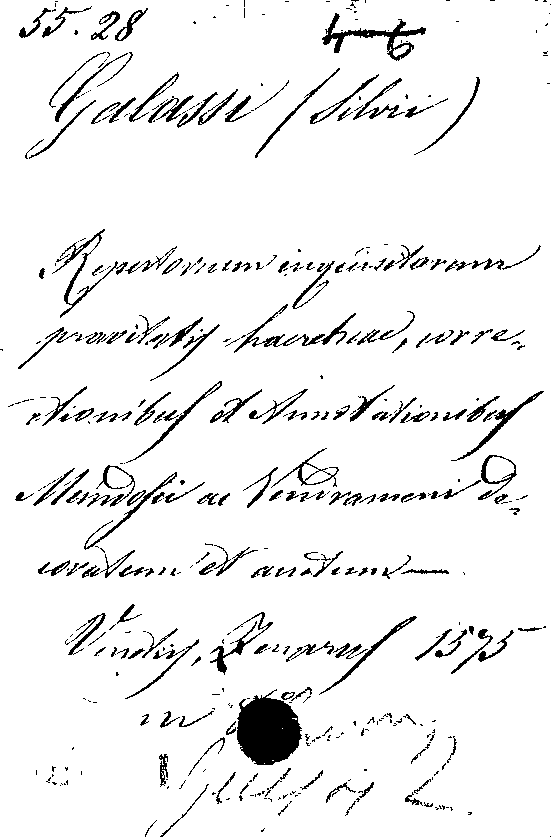 55.28 4-6
Galassi (Silvii)
Repertorium inquisitorum
pravitatis haereticae, corre-
ctionibus et Annotationibus
Mendosii ac Vendrameni de-
coratum et auctum —
Venetiis, Zenarus 1575
in